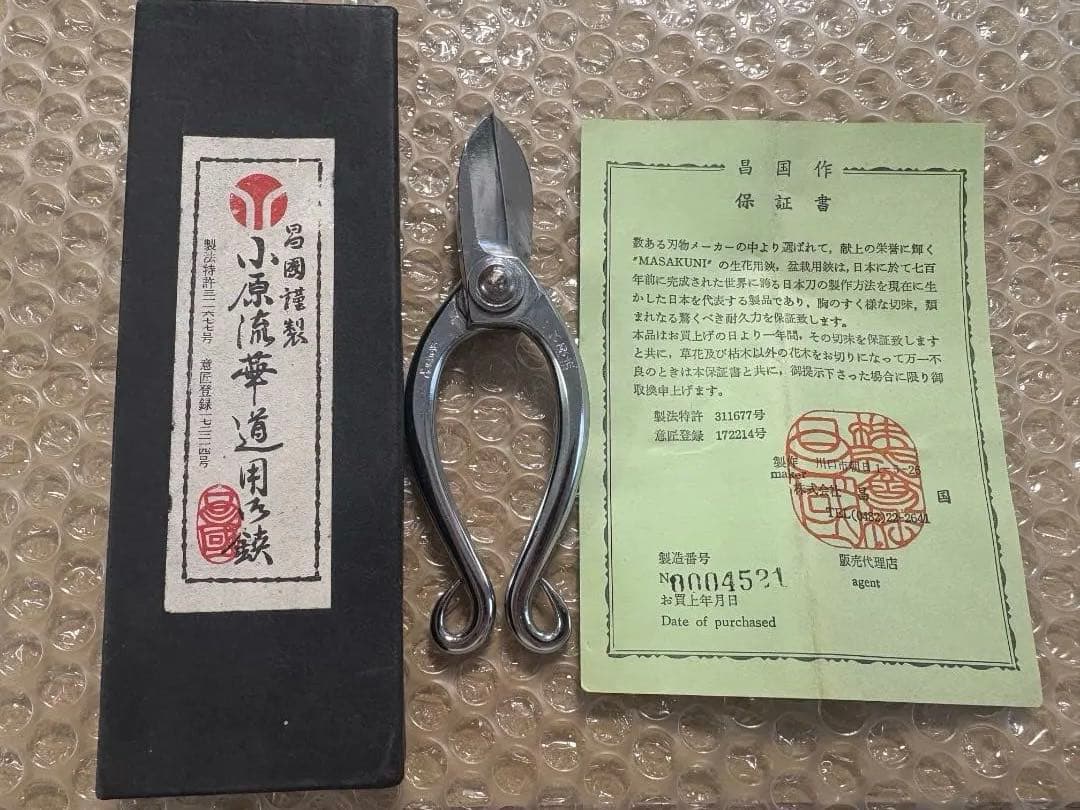 昌國謹製
小原流華道用花鋏
製法特許三一一六七七号 意匠登録一七二二一四号
昌國
昌国作
保証書
数ある刃物メーカーの中より選ばれて,献上の栄誉に輝く
"MASAKUNI"の生花用鋏,盆栽用鋏は,日本に於て七百
年前に完成された世界に誇る日本刀の製作方法を現在に生
かした日本を代表する製品であり,胸のすく様な切味,類
まれなる驚くべき耐久力を保証致します。
本品はお買上げの日より一年間,その切味を保証致します
と共に,草花及び枯木以外の花木をお切りになって万一不
良のときは本保証書と共に,御提示下さった場合に限り御
取換申上げます。
製法特許 311677号
意匠登録 172214号
製作 川口市朝日
maker
株式会社 昌国
TEL(0482)22-2641
販売代理店
agent
製造番号
No 0004521
お買上年月日
Date of purchased